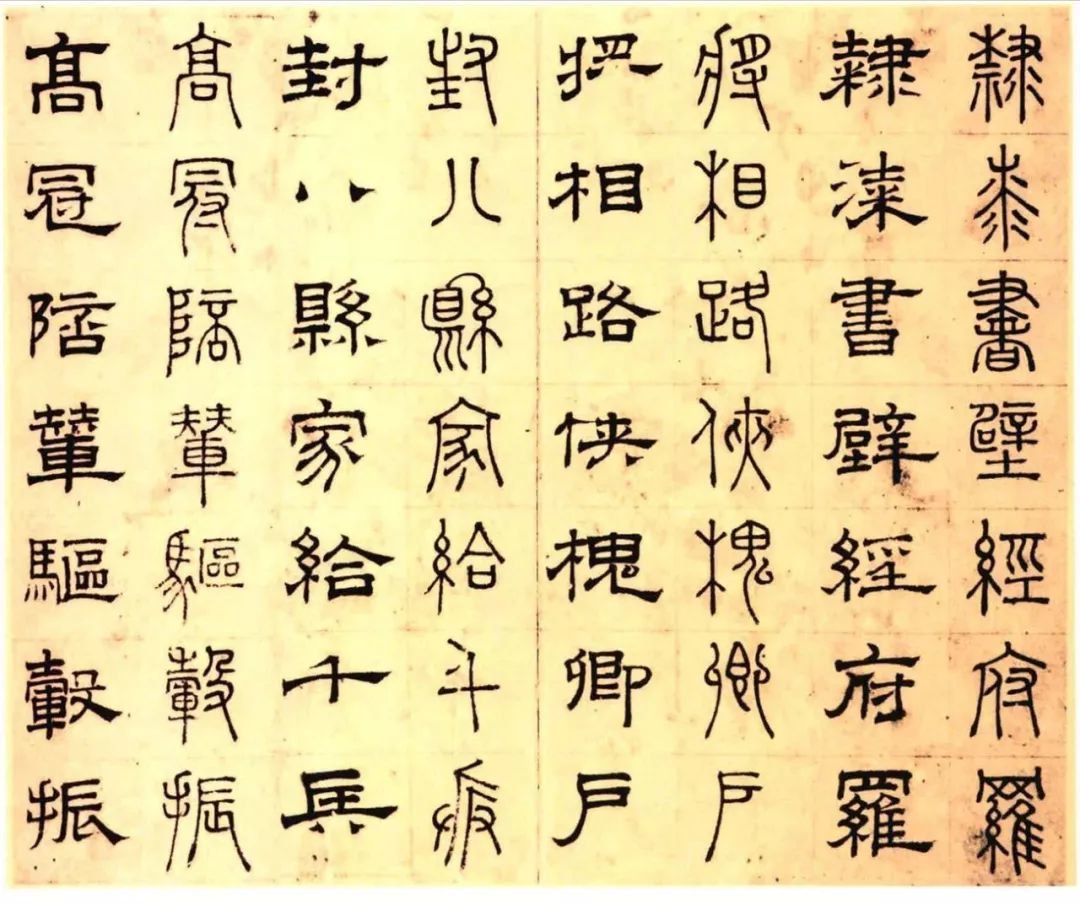 隸桼書壁經府羅
隸漆書壁經府羅
將相路俠槐卿戶
將相路俠槐卿戶
封八縣家給千兵
封八縣家給千兵
高冠陪輦驅轂振
高冠陪輦驅轂振